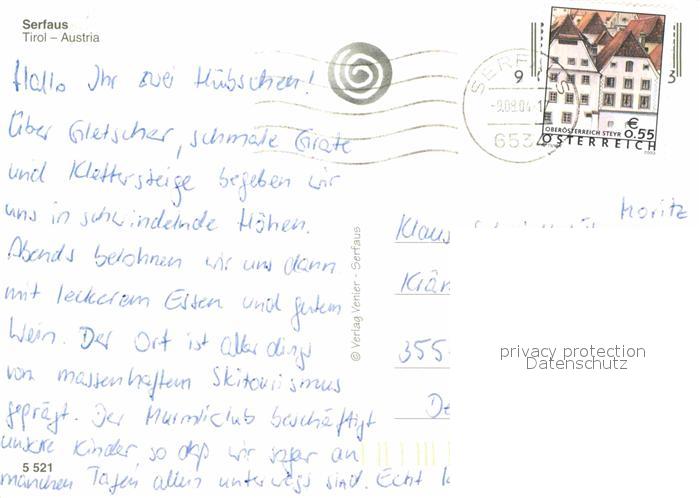 Serfaus
Tirol – Austria
Hallo Ihr zwei Hübschen!
Über Gletscher, schmale Grate
und Klettersteige begeben wir
uns in schwindelnde Höhen.
Abends belohnen wir uns dann
mit leckerem Essen und gutem
Wein. Der Ort ist allerdings
von massenhaftem Skitourismus
geprägt. Der Murmliclub beschäftigt
unsere Kinder so daß wir sogar an
manchen Tagen allein unterwegs sind. Echt
5 521
© Verlag Venier - Serfaus
SERFAUS
9
3
-9.08.04-1
6534
OBERÖSTERREICH STEYR
€ 0,55
ÖSTERREICH
2003
Moritz
Klaus
355
privacy protection
Datenschutz